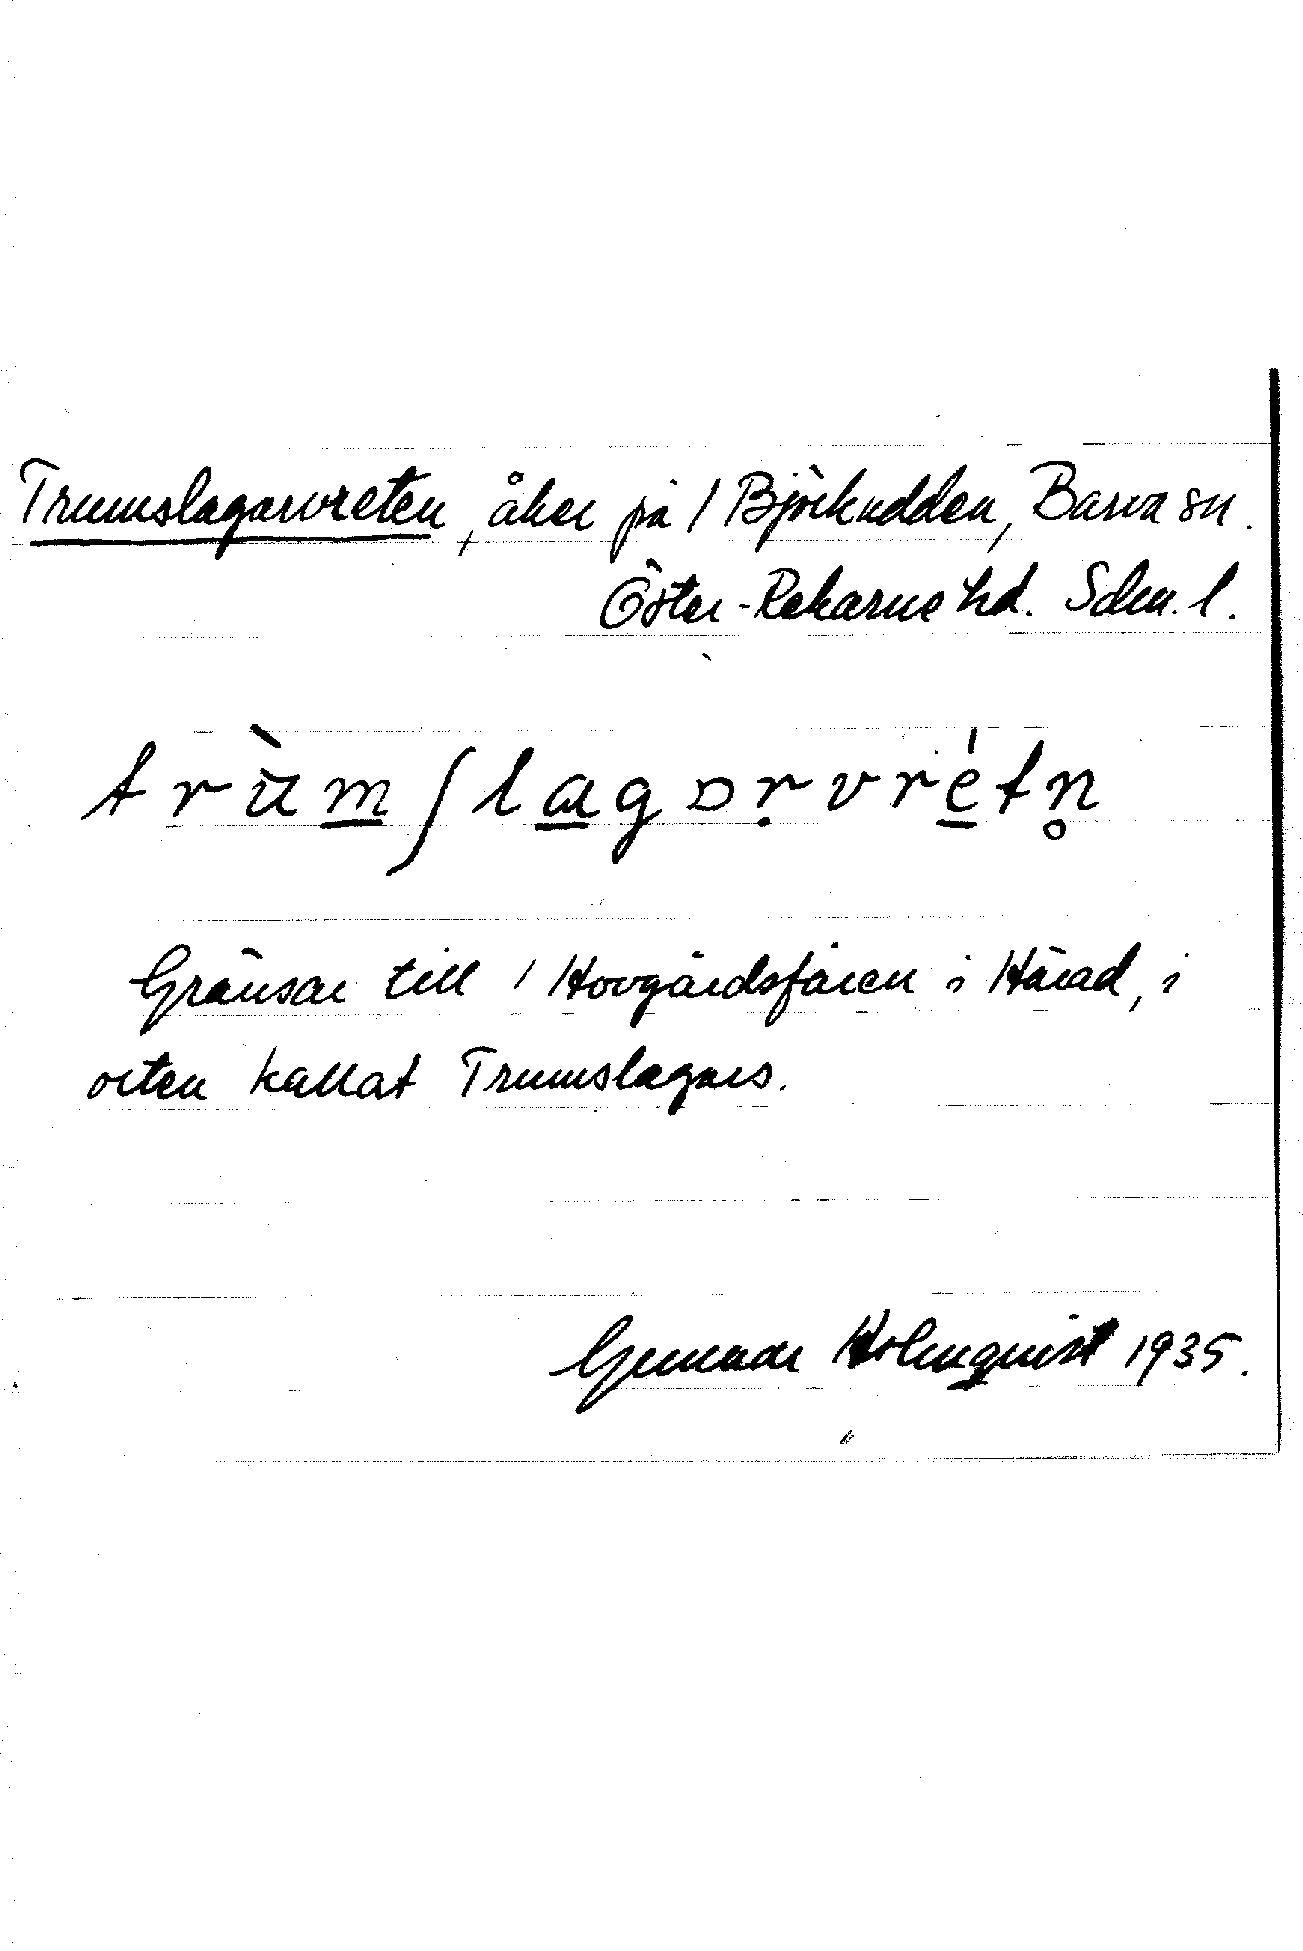 Trumslagarvreten, åker på / Björkudden, Barva sn.
Öster-Rekarne hd. Södm. l.
trùm̲ʃla̲gɒṛvre̲̍tn̥
Gränsar till / Hovgårdsfåren i Härad, i
orten kallat Trumslagars.
Gunnar Holmquist 1935.